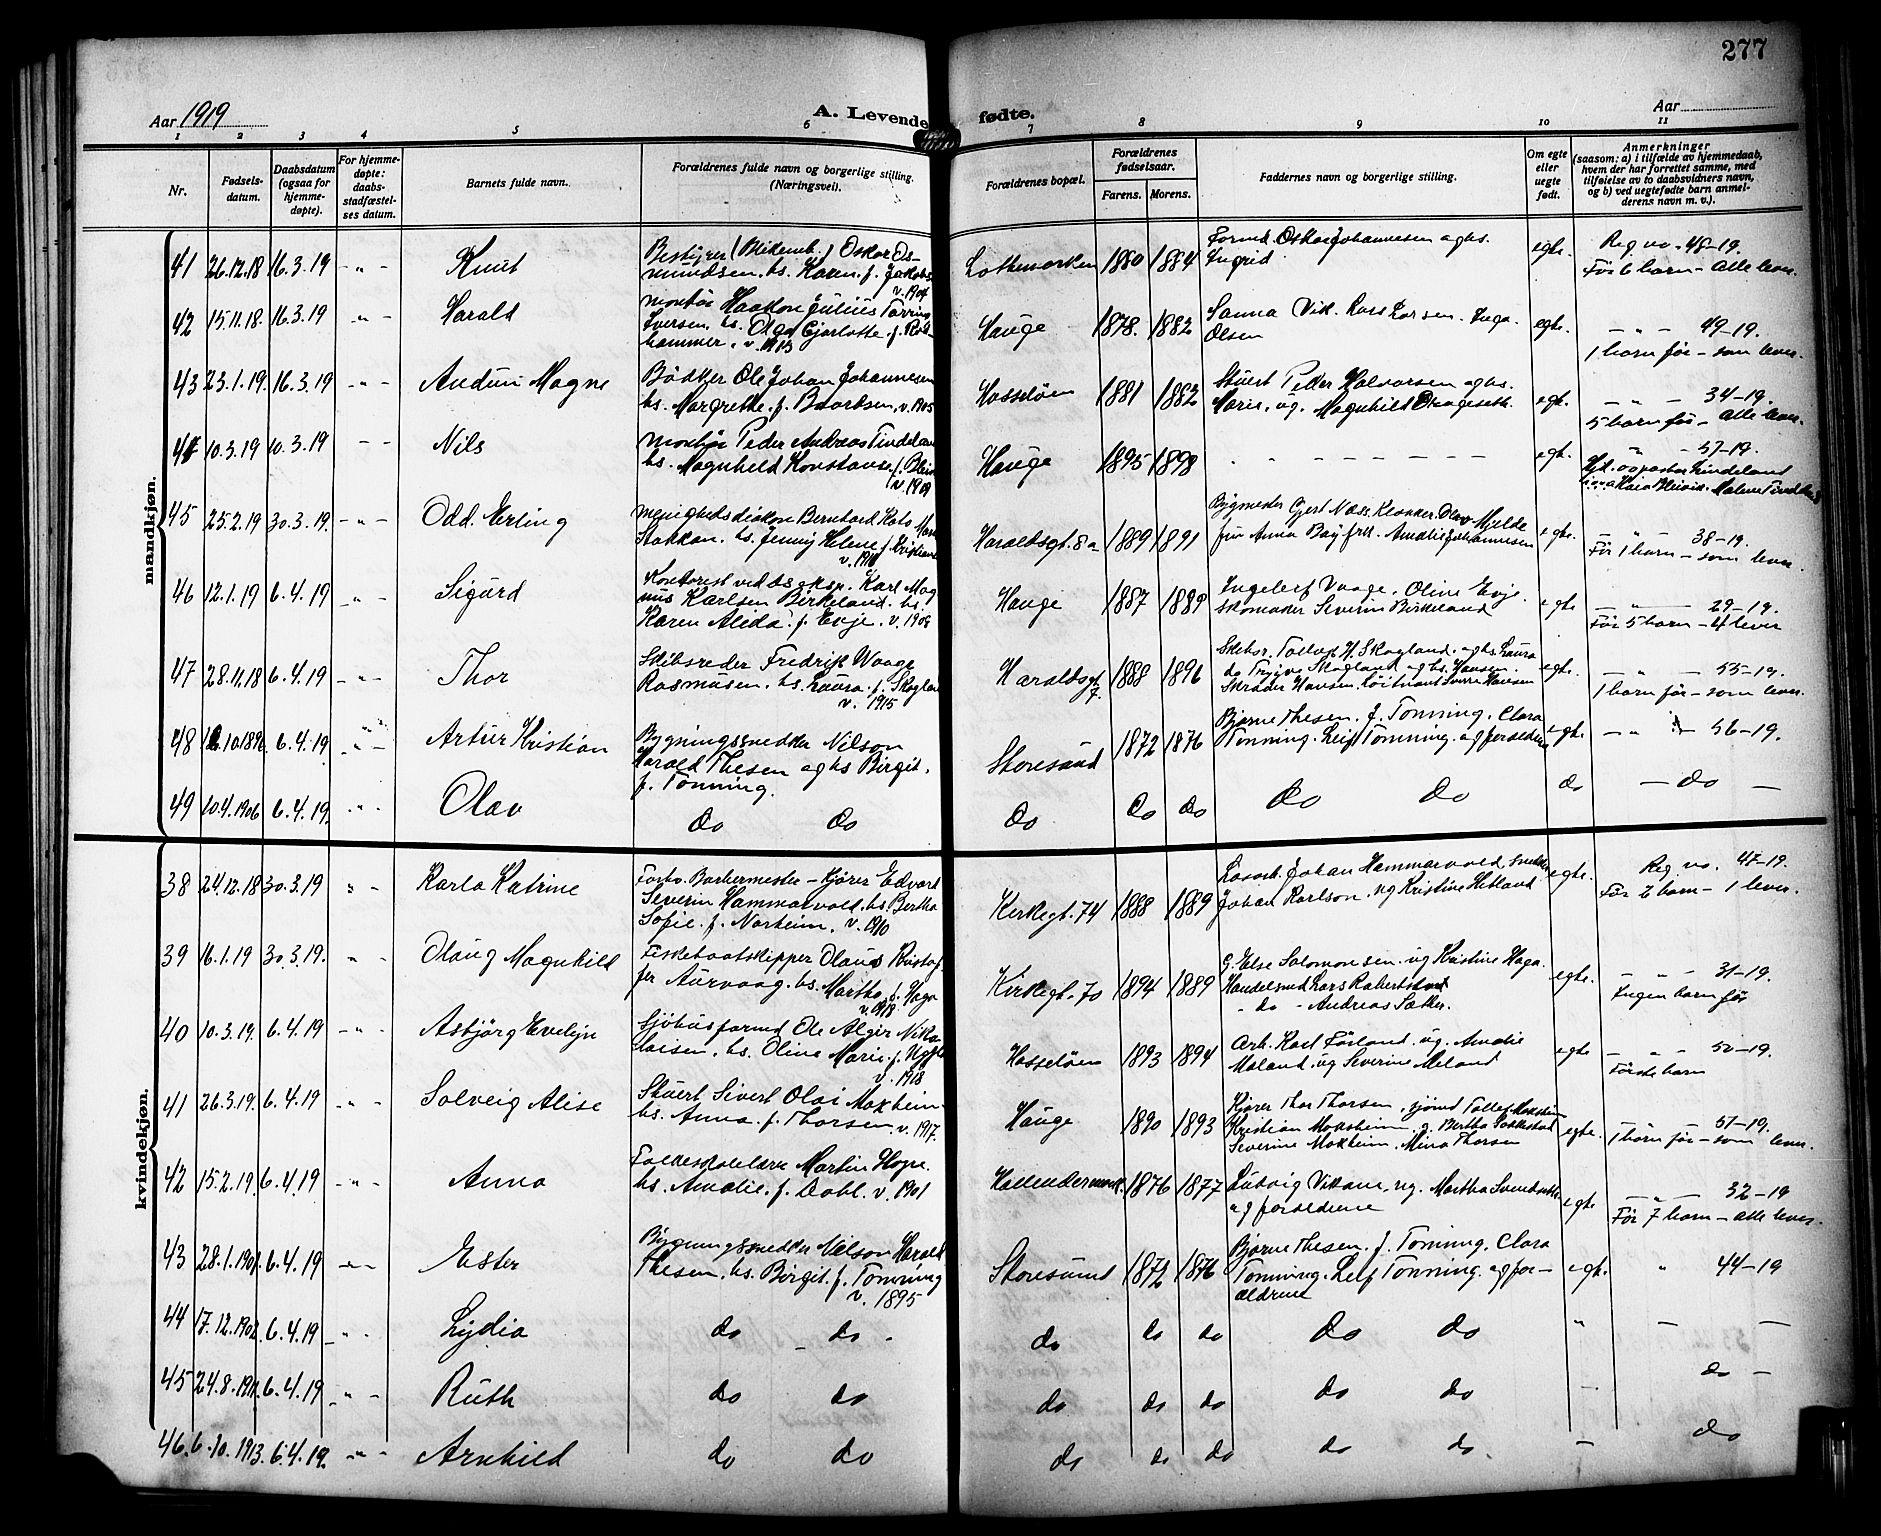 277
Aar 1919
A. Levende fødte.
Aar
1 2 3 4 5 6 7 8 9 10 11
Nr.
Fødsels-
datum.
Daabsdatum
(ogsaa for
hjemme-
døpte).
For hjemme-
døpte:
daabs-
stadfæstel-
ses datum.
Barnets fulde navn.
Forældrenes fulde navn og borgerlige stilling.
(Næringsvei).
Forældrenes bopæl.
Forældrenes
fødselsaar.
Farens. Morens.
Faddernes navn og borgerlige stilling.
Om egte
eller
uegte
født.
Anmerkninger
(saasom: a) i tilfælde av hjemmedaab,
hvem der har forrettet samme, med
tilføielse av to daabsvidners navn,
og b) ved uegtefødte barn anmel-
derens navn m. v.).
mandkjøn.
41 26.12.18 16.3.19 - " - Knut
Bestyrer Oskar Os-
mundsen. hs. Karen. f. Jakobs
v. 1904
Lothemarken 1880 1884
Formd. Oskar Johannesen og hs.
Ingrid
egte.
Reg no. 48-19.
Før 6 barn - Alle lever.
42 15.11.18. 16.3.19 - " - Harald
Montør Haakon Julius Torring
Iversen. hs. Olga Charlotte f. Rod-
hammer. v. 1913
Hauge 1878. 1882
Sanna Vik. Lars Larsen. Inga
Olsen
egte.
- " - 49-19.
1 barn før - som lever.
43 23.1.19. 16.3.19 - " - Audun Magne
Bødker Ole Johan Johannesen
hs. Margrethe. f. Baardsen. v. 1905
Hasseløen 1881 1882
Stuert Peder Halvorsen og hs.
Marie. ug. Magnhild
egte.
- " - 34-19.
5 barn før - Alle lever.
44 10.3.19 10.3.19 - - Nils
Montør Peder Andreas Tindeland
hs. Magnhild Konstanse f.
v. 1909
Hauge 1895 1898
- - - - - - - -
egte.
" - 57-19.
45 25.2.19 30.3.19. - " - Odd. Erling
Menighedsdiakon Bernhard
Stokkan. hs. Jenny Helene f. Kristians
Haraldsgt. 8a 1889 1891
Bygmester Gjert Næss. Klokker. Olav Mjelde
fru Anna Bøy frk. Amalie Johannesen
egte.
- " - 38-19.
Før 1 barn - som lever.
46 12.1.19 6.4.19 - " - Sigurd
Kontorist Karl Mag
nus Karlsen Birkeland. hs.
Karen Alida. f. Evje. v. 1908
Hauge 1887 1889
Ingeleif Vaage. Oline Evje.
skomaker Severin Birkeland
egte
- " - 29-19.
Før 5 barn - 4 lever
47 28.11.18 6.4.19 - " - Thor
Skibsreder Fredrik Waage
Rasmusen. hs. Laura. f. Skogland
v. 1915
Haraldsgt 7. 1888 1896
Skibsr. Tollak H. Skogland. og hs. Laura
do Trygve Skogland og hs. Hansen.
Skræder Hansen. Løitnant Sverre Hansen
egte.
- " - 55-19.
1 barn før - som lever.
48 6.4.19 - " - Artur Kristian
Bygningssnedker Nilson
Harald Thesen og hs Birgit.
f. Tonning.
Storesund 1872 1876
Bjarne Thesen. f. Tonning. Clara
Tonning. Leif Tonning. og forældrene
egte.
- " - 56-19.
49 10.4.1906 6.4.19. - " - Olav
do do
do do do
do do
do
- do -
kvindekjøn.
38 24.12.18 30.3.19 " - Karla Katrine
Forhv. Barbermester - Kjører Edvart
Severin Hammarvold. hs. Bertha
Sofie. f. Norheim. v. 1910
Kirkegt. 74 1888 1889
Johan Hammarvold, snedker
Johan Karlson. ug Kristine Hetland
egte.
Reg no. 47-19.
Før 2 barn - 1 lever.
39 16.1.19 30.3.19. " - Olaug Magnhild
Fiskebaatskipper Olaus Kristof-
fer Aurvaag. hs. Martha f. Haga
v. 1918
Kirkegt. 70 1894 1889
G. Else Salomonsen. ug Kristine Haga.
Handelsmd Lars Rabertstad
- do - Andreas Sætter.
egte.
- " - 31-19.
Ingen barn før
40 10.3.19. 6.4.19 - " - Asbjørg Evelyn
Sjøhusformd Ole Alger Niko
laisen. hs. Oline Marie. f.
v. 1918
Hasseløen 1893 1894
Arb. Karl Førland. ug. Amalie
Moland. ug Severine Meland
egte
- " - 50-19.
Første barn
41 26.3.19. 6.4.19 - " - Solveig Alise
Stuert Sivert Olai Mokheim
hs. Anna. f. Thorsen. v. 1917.
Hauge 1890 1893
Kjører Thor Thorsen, sjømd Tollef Mokheim
Kristian Moksheim g. Bertha Sakkestad
Severine Mokheim. Mina Thorsen
egte.
- " - 51-19.
1 barn før - som lever.
42 15.2.19. 6.4.19 - " - Anna
Folkeskolelærer Martin Hogne.
hs. Amalie. f. Dahl. v. 1901
1876 1877
Ludvig Vikane. ug. Martha
og forældrene
egte.
- " - 32-19
Før 7 barn - alle lever.
43 6.4.19 - " - Ester
Bygningssnedker Nilson Harald
Thesen. hs. Birgit. f. Tonning
v. 1895
Storesund 1872 1876
Bjarne Thesen. f. Tonning. Clara
Tonning. Leif Tonning. og for-
ældrene
egte.
" 44-19
44 6.4.19 - " - Lydia
do do -
do do do
do do
" - -
45 6.4.19 - " - Ruth
do do
do do do
do do
- do -
46. 6.10.1913. 6.4.19. - " - Arnhild
do do
do do do
do do
- do